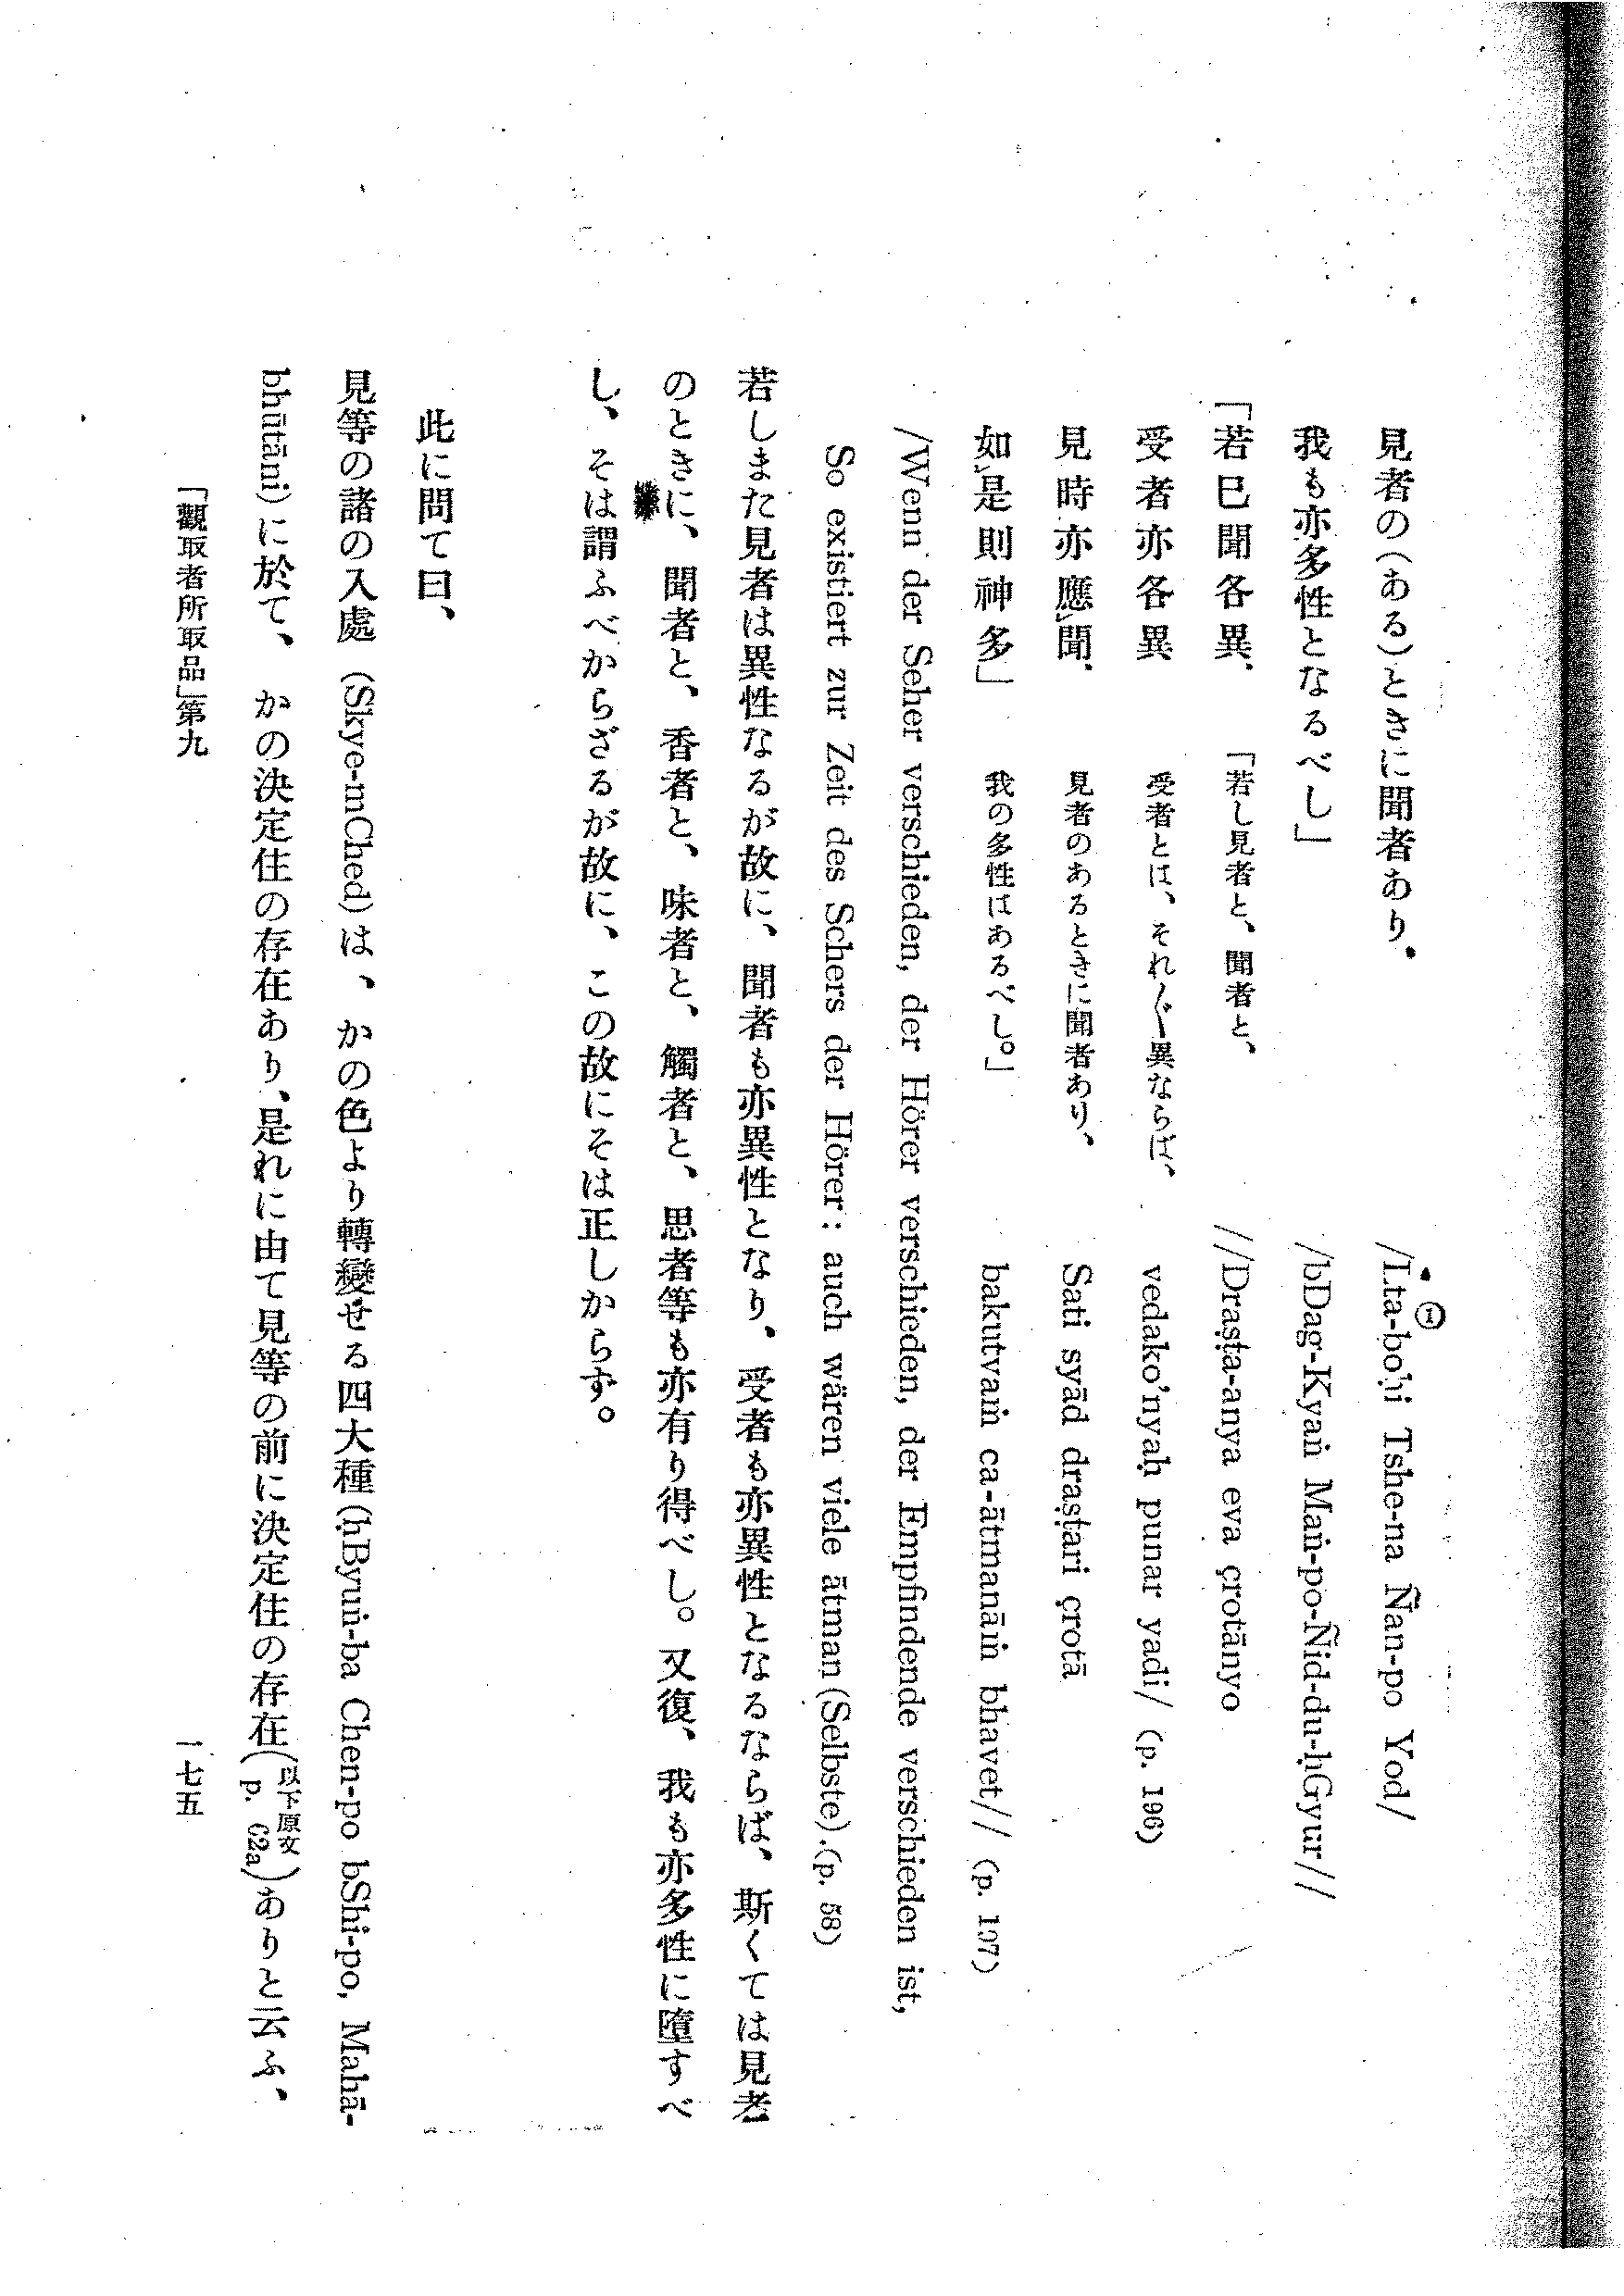 見者の(ある)ときに聞者あり、 /Lta-boḥi Tshe-na Ñan-po Yod/ ①
我も亦多性となるべし」 /bDag-Kyaṅ Maṅ-po-Ñid-du-ḥGyur//
「若已聞各異、 「若し見者と、聞者と、 //Draṣṭa-anya eva çrotānyo
受者亦各異 受者とは、それ〲異ならば、 vedako'nyaḥ punar yadi/ (p. 196)
見時亦應㆑聞、 見者のあるときに聞者あり、 Sati syād draṣṭari çrotā
如㆑是則神多」 我の多性はあるべし。」 bakutvaṁ ca-ātmanāṁ bhavet// (p. 197)
/Wenn der Seher verschieden, der Hörer verschieden, der Empfindende verschieden ist,
So existiert zur Zeit des Schers der Hörer: auch wären viele ātman (Selbste).(p. 58)
若しまた見者は異性なるが故に、聞者も亦異性となり、受者も亦異性となるならば、斯くては見者
のときに、聞者と、香者と、味者と、觸者と、思者等も亦有り得べし。又復、我も亦多性に墮すべ
し、そは謂ふべからざるが故に、この故にそは正しからず。
此に問て曰、
見等の諸の入處 (Skye-mChed)は、かの色より轉變せる四大種(ḥByuṅ-ba Chen-po bShi-po, Mahā-
bhūtāni)に於て、かの決定住の存在あり、是れに由て見等の前に決定住の存在(以下原文 p. 62a)ありと云ふ、
「觀取者所取品」第九 一七五